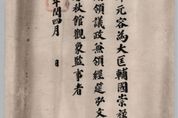 元容爲大匡輔國崇
領議政兼領經筵弘文
秋館觀象監事者
年閏四月